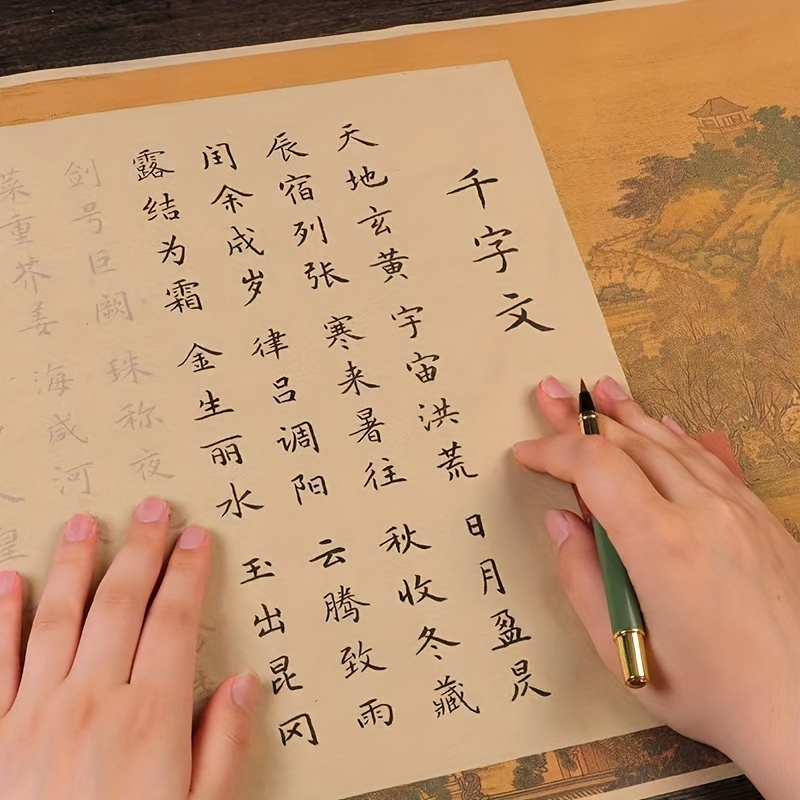 千字文
天地玄黄 宇宙洪荒 日月盈昃
辰宿列张 寒来暑往 秋收冬藏
闰余成岁 律吕调阳 云腾致雨
露结为霜 金生丽水 玉出昆冈
剑号巨阙 珠称夜
菜重芥姜 海咸河
人皇